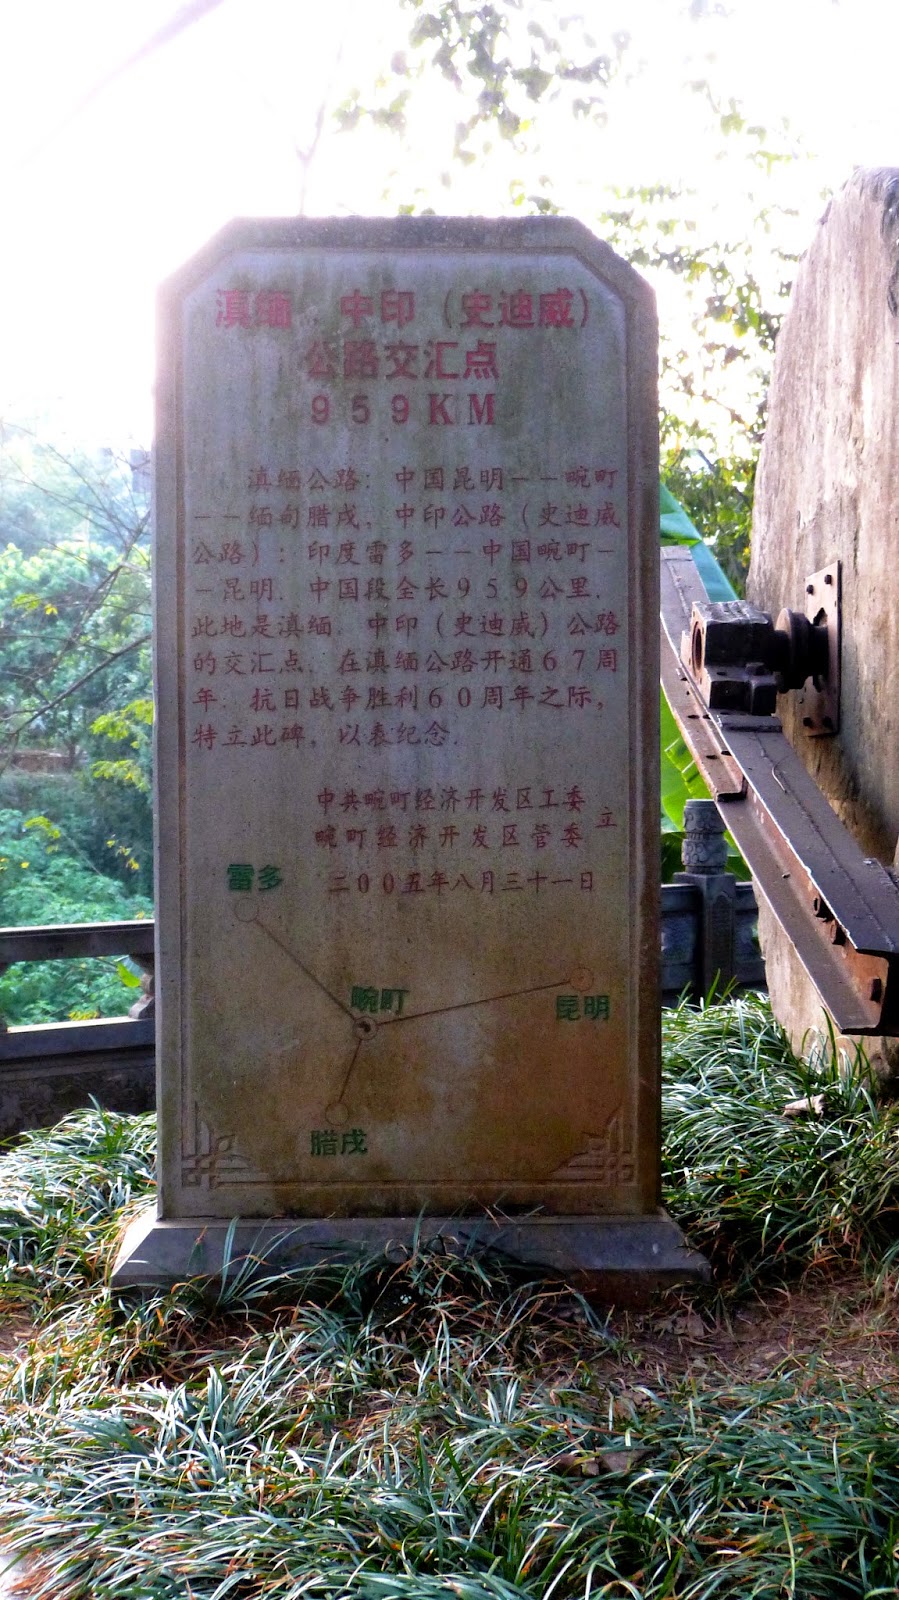 滇缅、中印（史迪威）
公路交汇点
959KM
滇缅公路：中国昆明--畹町
--缅甸腊戌、中印公路（史迪威
公路）：印度雷多--中国畹町-
-昆明. 中国段全长959公里.
此地是滇缅、中印（史迪威）公路
的交汇点. 在滇缅公路开通67周
年、抗日战争胜利60周年之际,
特立此碑, 以表纪念.
中共畹町经济开发区工委
畹町经济开发区管委 立
二00五年八月三十一日
雷多
畹町
昆明
腊戌